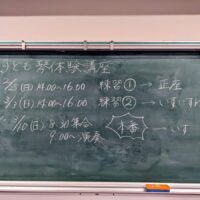 子ども箏体験講座
(日) 14:00~16:00 練習① → 正座
3/1 (日) 14:00~16:00 練習② → いす
3/10 (日) 集合
9:00~演奏 本番 → いす